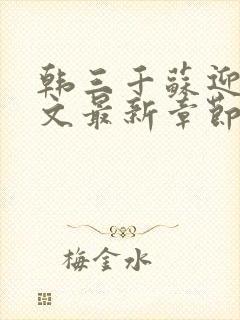 韩三千苏迎
文最新章节
梅金水